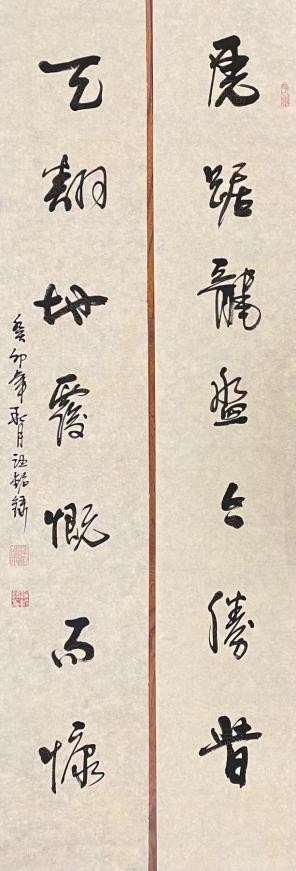 虎踞龍盤今勝昔
天翻地覆慨而慷
癸卯年